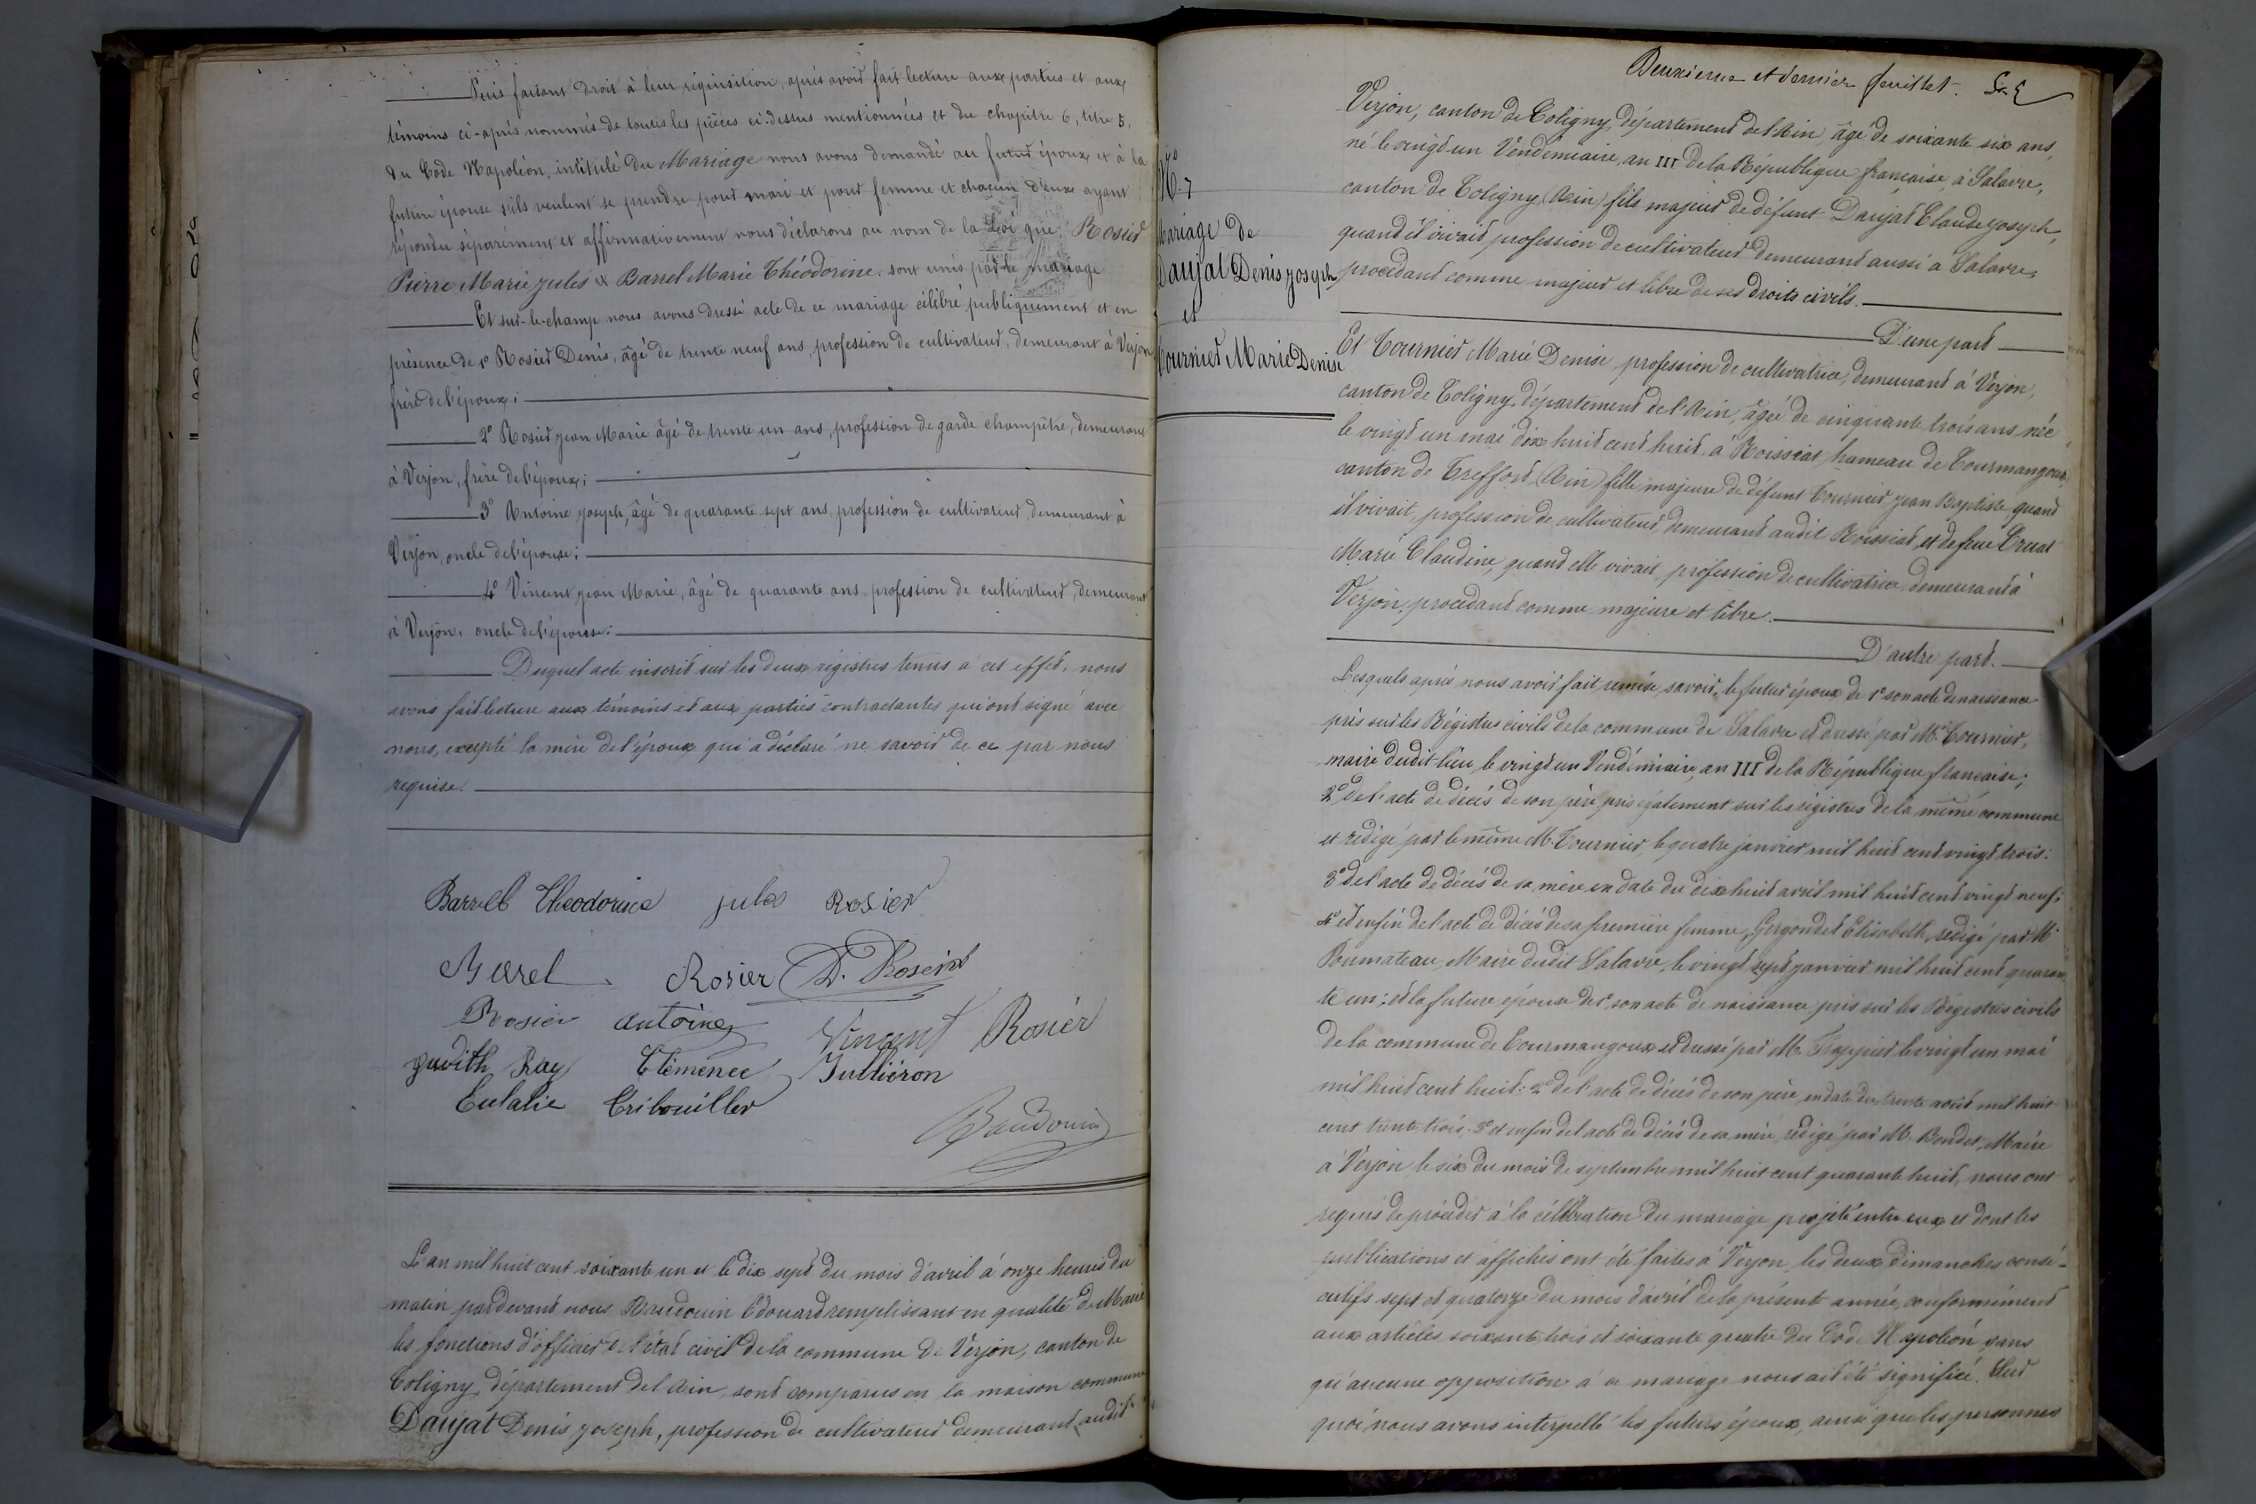 Puis faisant droit à leur réquisition, après avoir fait lecture aux parties et aux
témoins ci-après nommés de toutes les pièces ci-dessus mentionnées et du chapitre 6, titre 5,
du Code Napoléon, intitulé du Mariage nous avons demandé au futur époux et à la
future épouse s'ils veulent se prendre pour mari et pour femme et chacun d'eux ayant
répondu séparément et affirmativement nous déclarons au nom de la Loi que Rosier
Pierre Marie Jules & Barrel Marie Théodorine sont unis par le mariage
Et sur-le-champ nous avons dressé acte de ce mariage célébré publiquement et en
présence de 1° Rosier Denis, âgé de trente neuf ans, profession de cultivateur, demeurant à Verjon
frère de l'époux;
2° Rosier Jean Marie âgé de trente un ans, profession de garde champêtre, demeurant
à Verjon, frère de l'époux;
3° Antoine Joseph, âgé de quarante sept ans, profession de cultivateur, demeurant à
Verjon, oncle de l'épouse;
4° Vincent Jean Marie, âgé de quarante ans, profession de cultivateur, demeurant
à Verjon, oncle de l'épouse;
Duquel acte inscrit sur les deux régistres tenus à cet effet, nous
avons fait lecture aux témoins et aux parties contractantes qui ont signé avec
nous, excepté la mère de l'époux qui a déclaré ne savoir de ce par nous
requise.
Barrel Théodorine Jules Rosier
Rosier D. Rosier
Rosier Antoine Vincent Rosier
Judith Ray Clémence Jullieron
Eulalie Tribouiller
Baudouin
L'an mil huit cent soixante un et le dix sept du mois d'avril à onze heures du
matin pardevant nous Baudouin Edouard remplissant en qualité de Maire
les fonctions d'officier de l'état civil de la commune de Verjon, canton de
Coligny, département de l'Ain, sont comparus en la maison commune
Daujat Denis Joseph, profession de cultivateur demeurant audit
Deuxième et dernier feuillet.
N° 7
Mariage de
Daujat Denis Joseph
et
Tournier Marie Denise
Verjon, canton de Coligny, département de l'Ain, âgé de soixante six ans,
né le vingt un Vendémiaire, an III de la République française, à Salavre,
canton de Coligny (Ain) fils majeur de défunt Daujat Claude Joseph,
quand il vivait profession de cultivateur demeurant aussi à Salavre,
procédant comme majeur et libre de ses droits civils.
D'une part
Et Tournier Marie Denise, profession de cultivatrice, demeurant à Verjon,
canton de Coligny, département de l'Ain, âgée de cinquante trois ans, née
le vingt un mai dix huit cent huit, à Roissiat, hameau de Courmangoux,
canton de Treffort (Ain) fille majeure de défunt Tournier Jean Baptiste, quand
il vivait, profession de cultivateur, demeurant audit Roissiat, et de feue
Marie Claudine, quand elle vivait, profession de cultivatrice demeurant à
Verjon, procédant comme majeure et libre.
D'autre part.
Lesquels après nous avoir fait remise, savoir, le futur époux de 1° son acte de naissance
pris sur les Régistres civils de la commune de Salavre et dressé par M. Tournier,
maire dudit lieu, le vingt un Vendémiaire, an III de la République française;
2° de l'acte de décès de son père, pris également sur les régistres de la même commune
et rédigé par le même M. Tournier, le quatre janvier mil huit cent vingt trois;
3° de l'acte de décès de sa mère en date du dix huit avril mil huit cent vingt neuf;
4° et enfin de l'acte de décès de sa première femme, Gergondet Elisabeth, rédigé par M.
Maire dudit Salavre, le vingt sept janvier mil huit cent quaran
te un; et la future épouse de 1° son acte de naissance pris sur les Régistres civils
de la commune de Courmangoux et dressé par M. Frappier le vingt un mai
mil huit cent huit; 2° de l'acte de décès de son père, en date du trente août mil huit
cent trente trois; 3° et enfin de l'acte de décès de sa mère, rédigé par M. Bondet, Maire
à Verjon le six du mois de septembre mil huit cent quarante huit, nous ont
requis de procéder à la célébration du mariage projeté entre eux et dont les
publications et affiches ont été faites à Verjon, les deux dimanches consé-
cutifs sept et quatorze du mois d'avril de la présente année, conformément
aux articles soixante trois et soixante quatre du Code Napoléon sans
qu'aucune opposition à ce mariage nous ait été signifiée. Sur
quoi nous avons interpellé les futurs époux, ainsi que les personnes